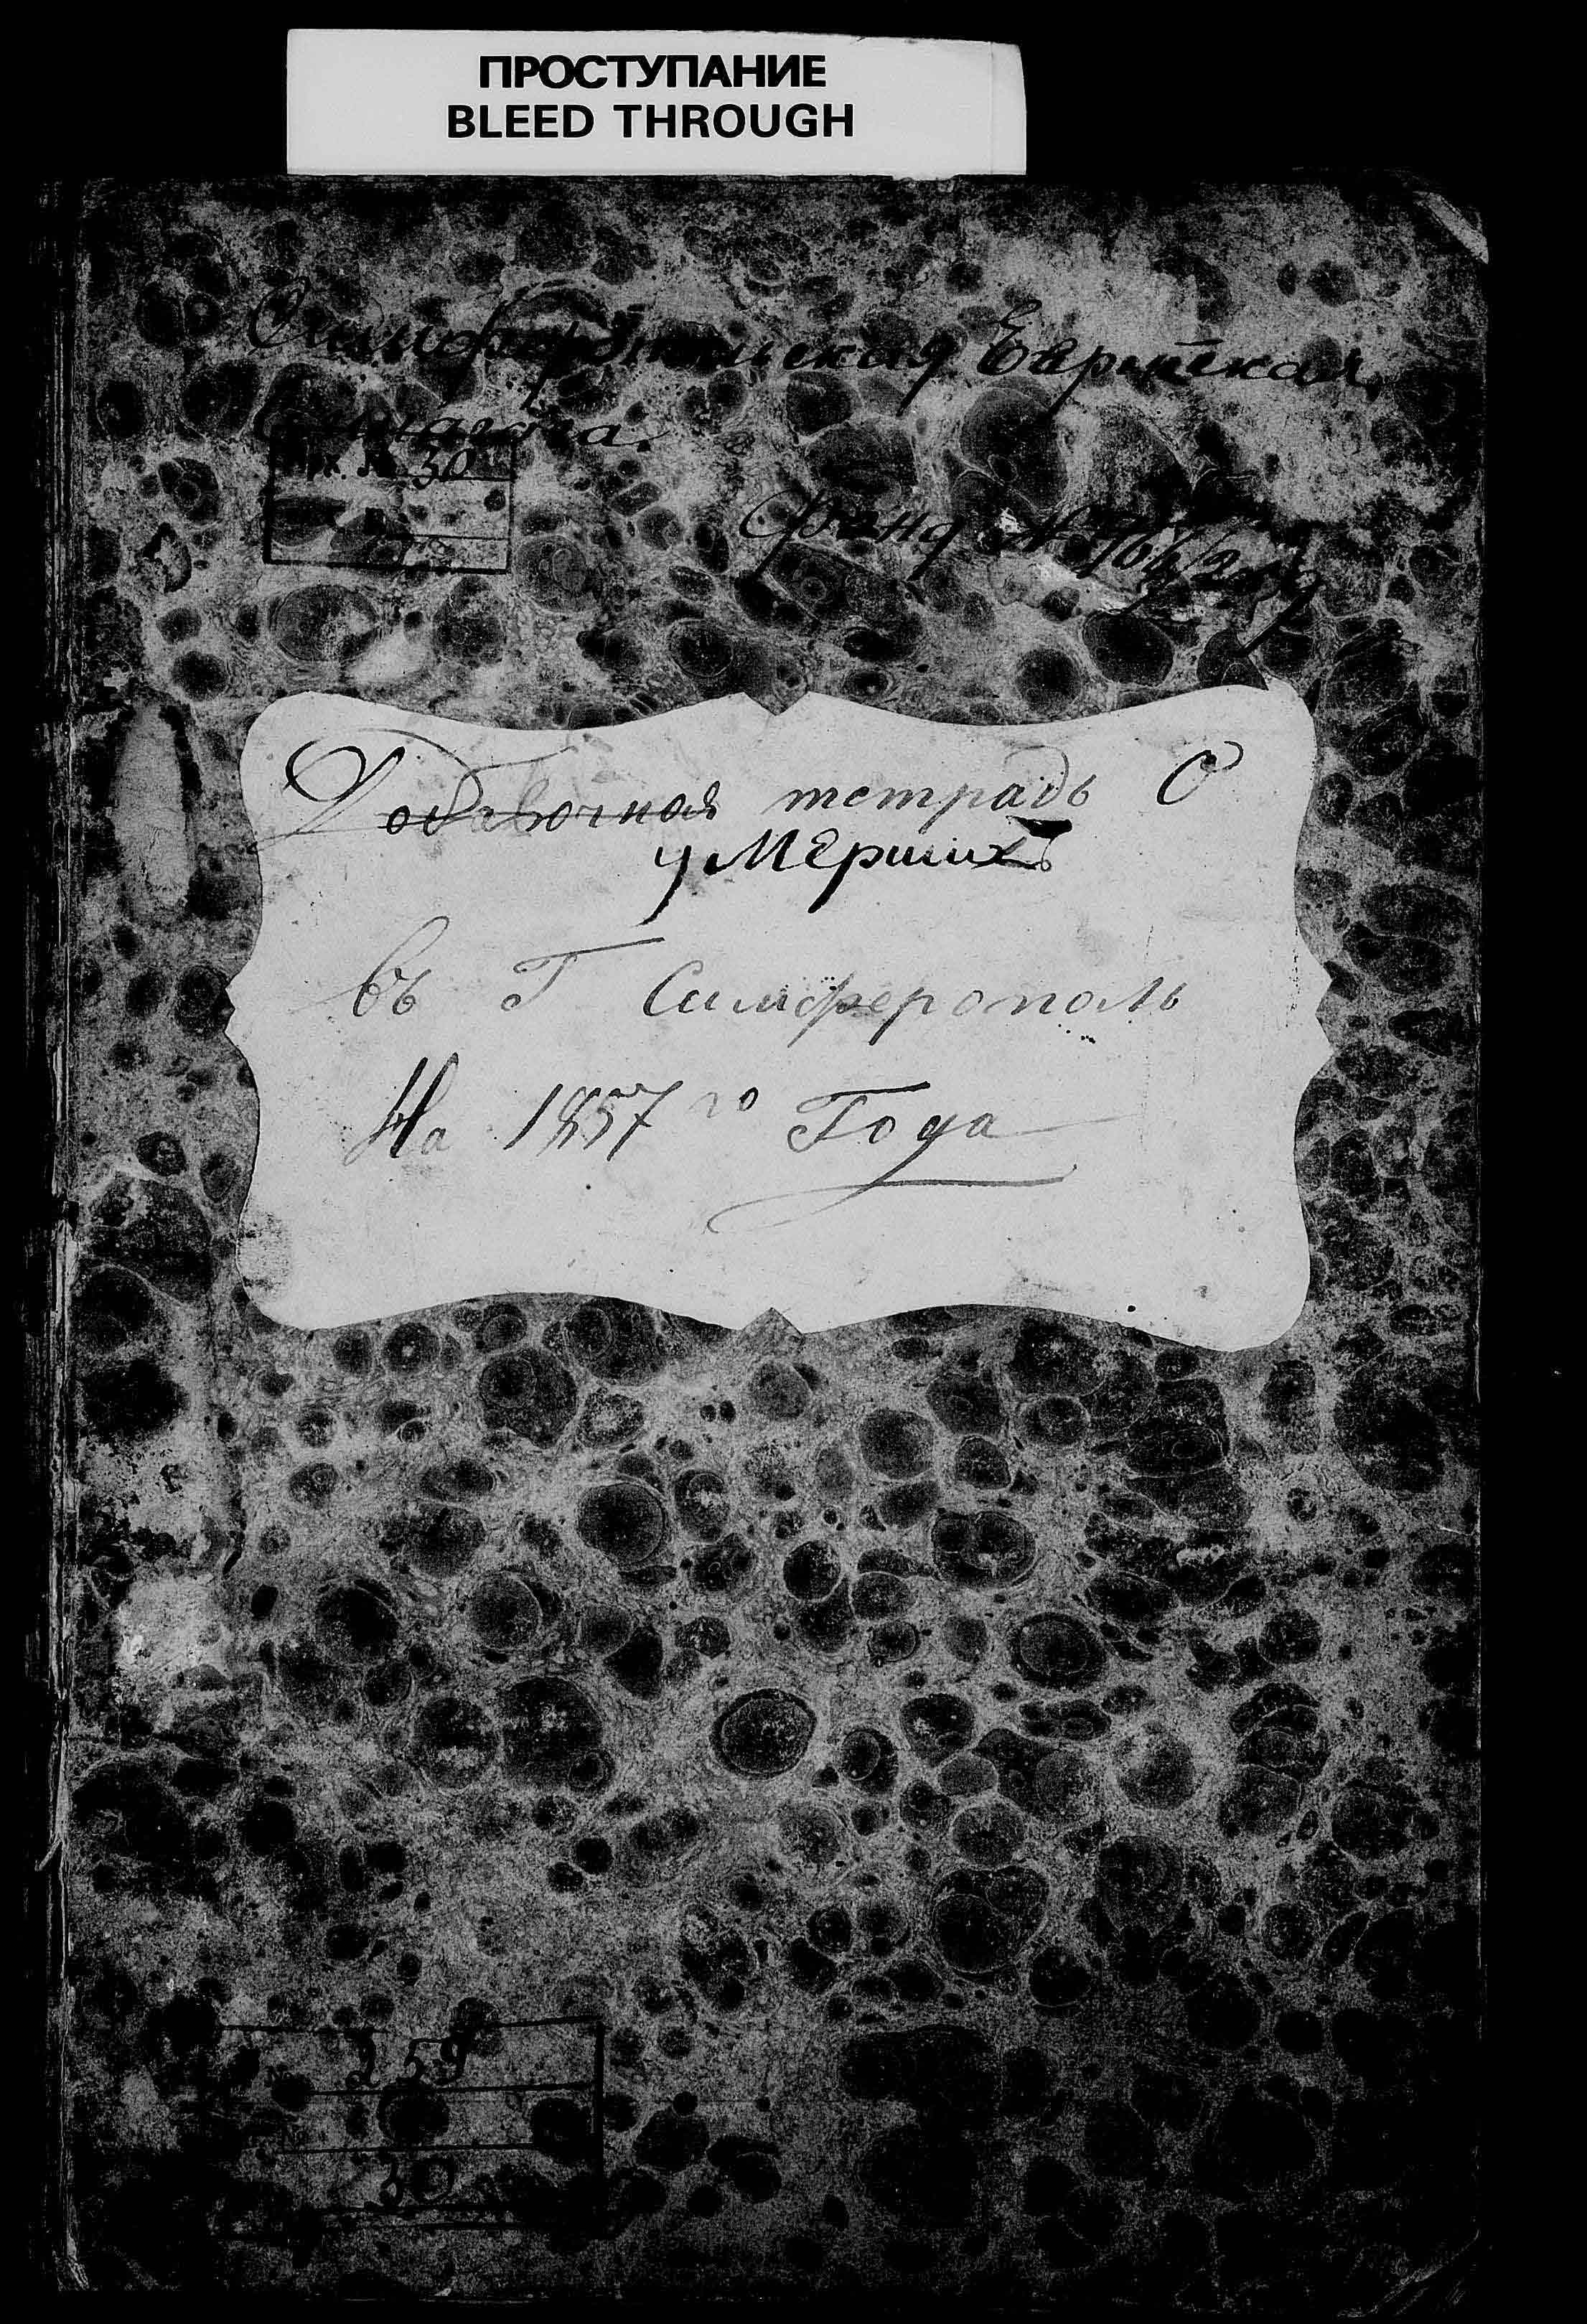 ПРОСТУПАНИЕ
BLEED THROUGH
Симферопольская Еврейская
Синагога.
30
Фонд №
Добавочная тетрадь О
умерших
въ Г Симферополь
На 1857 го Года
№ 259
№
30